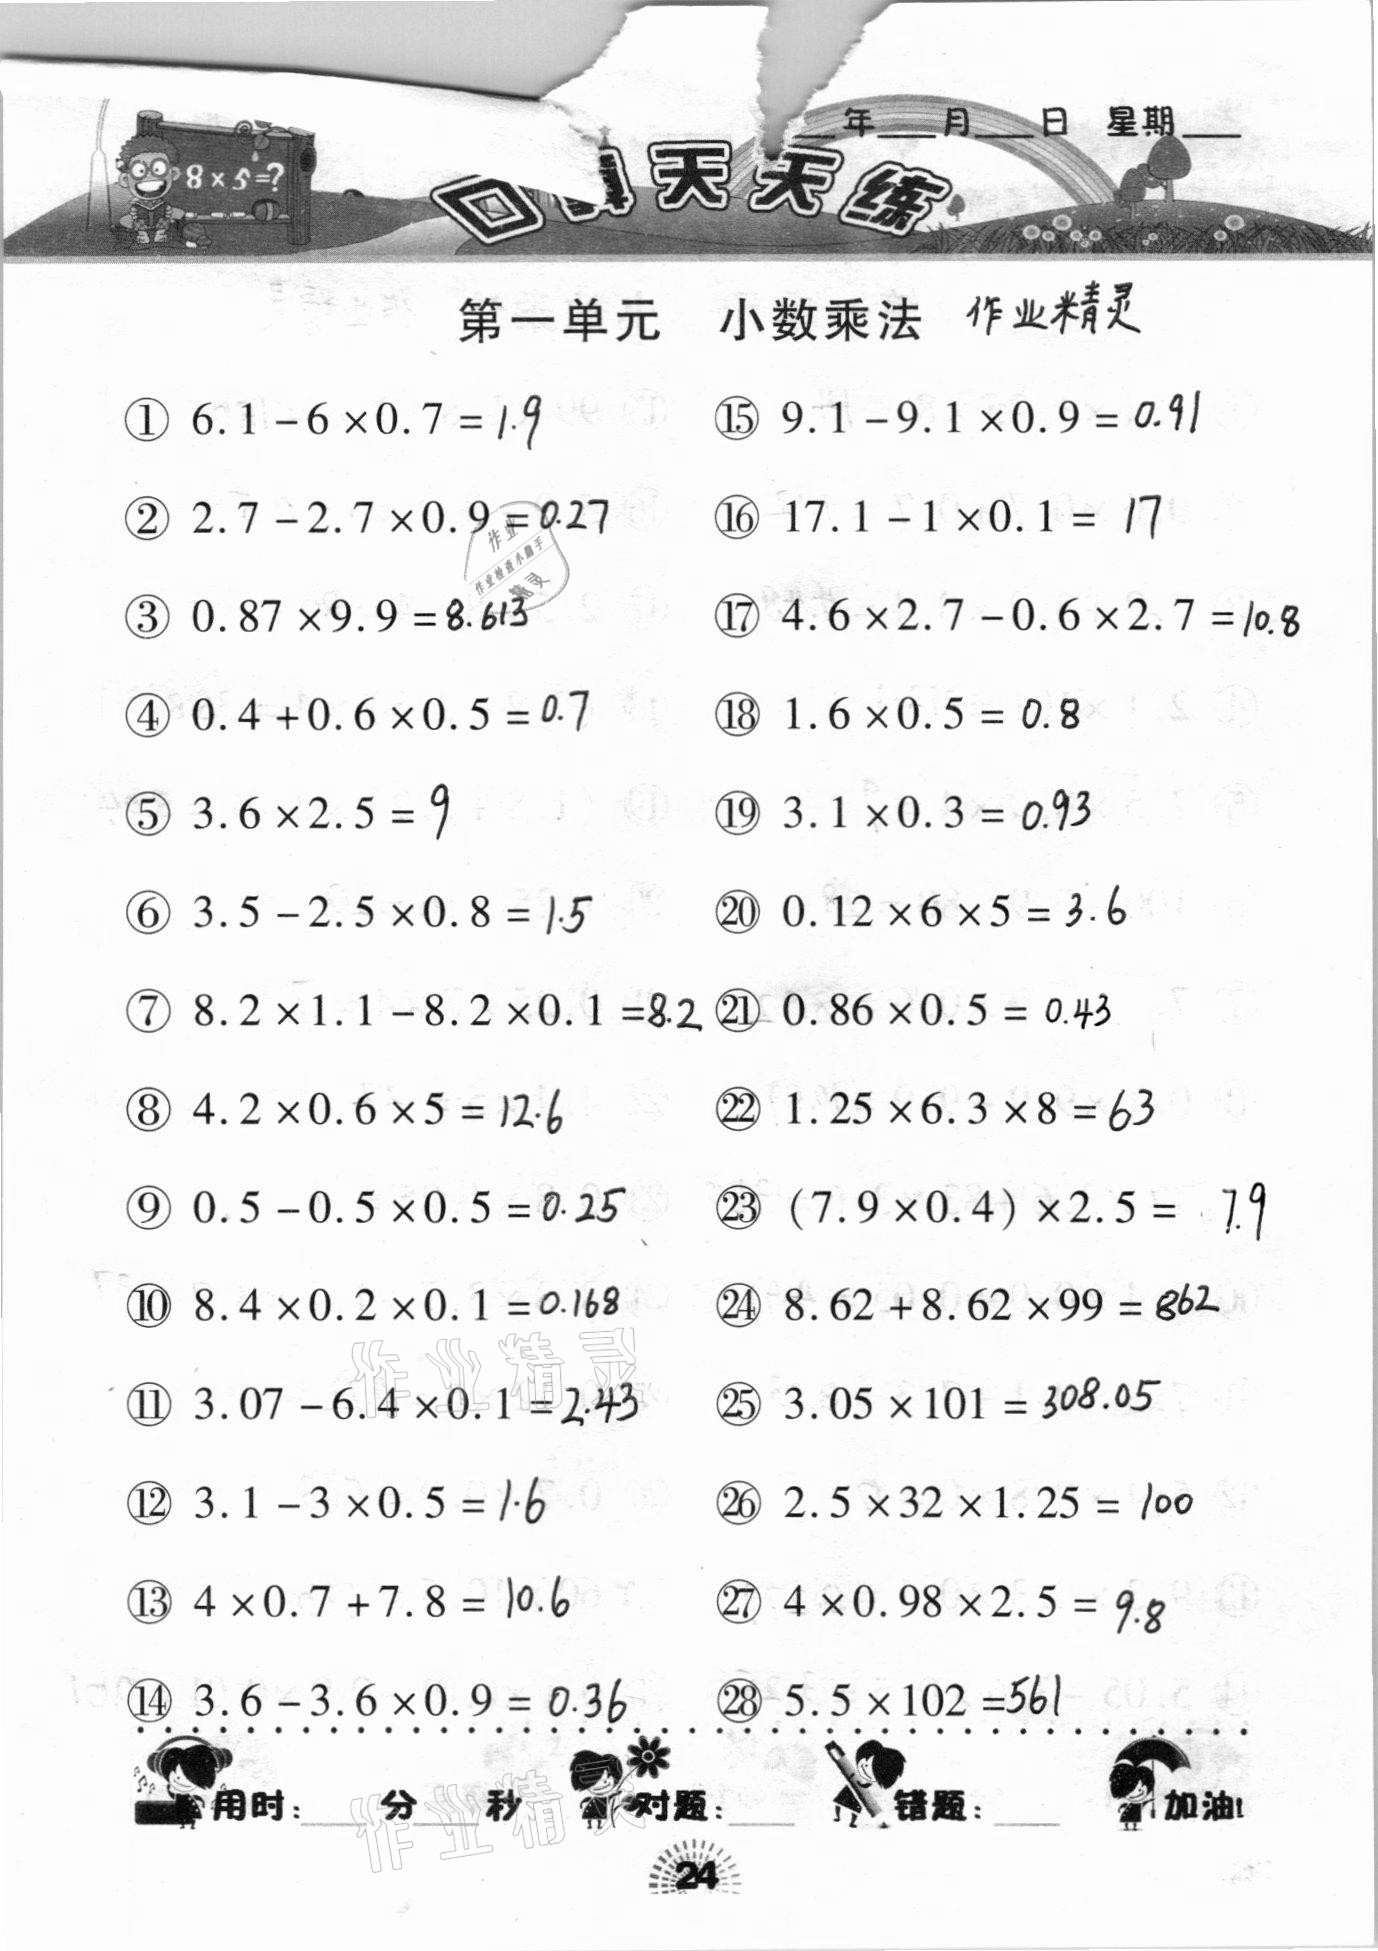 8×5=?
___年___月___日 星期___
口算天天练
第一单元 小数乘法 作业精灵
① 6.1-6×0.7=1.9
② 2.7-2.7×0.9=0.27
③ 0.87×9.9=8.613
④ 0.4+0.6×0.5=0.7
⑤ 3.6×2.5=9
⑥ 3.5-2.5×0.8=1.5
⑦ 8.2×1.1-8.2×0.1=8.2
⑧ 4.2×0.6×5=12.6
⑨ 0.5-0.5×0.5=0.25
⑩ 8.4×0.2×0.1=0.168
⑪ 3.07-6.4×0.1=2.43
⑫ 3.1-3×0.5=1.6
⑬ 4×0.7+7.8=10.6
⑭ 3.6-3.6×0.9=0.36
⑮ 9.1-9.1×0.9=0.91
⑯ 17.1-1×0.1=17
⑰ 4.6×2.7-0.6×2.7=10.8
⑱ 1.6×0.5=0.8
⑲ 3.1×0.3=0.93
⑳ 0.12×6×5=3.6
㉑ 0.86×0.5=0.43
㉒ 1.25×6.3×8=63
㉓ (7.9×0.4)×2.5=7.9
㉔ 8.62+8.62×99=862
㉕ 3.05×101=308.05
㉖ 2.5×32×1.25=100
㉗ 4×0.98×2.5=9.8
㉘ 5.5×102=561
作业
作业检查小助手
精灵
作业精灵
作业精灵
用时:___分___秒 对题:___ 错题:___ 加油!
24